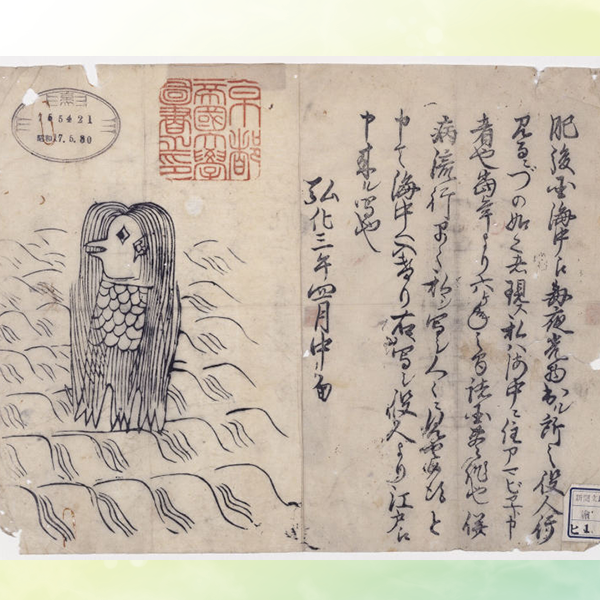 肥後国海中え毎夜光物出ル所之役人行
見るニづの如く者現ス私ハ海中ニ住アマビヱト申
者也当年より六ヶ年之間諸国豊作也併
病流行早々私ヲ写シ人々ニ見セ候得と
申て海中へ入けり右写シ役人より江戸え
申来ル写也
弘化三年四月中旬
京都
帝國大學
圖書之印
165421
昭和17.6.30
ヒ1